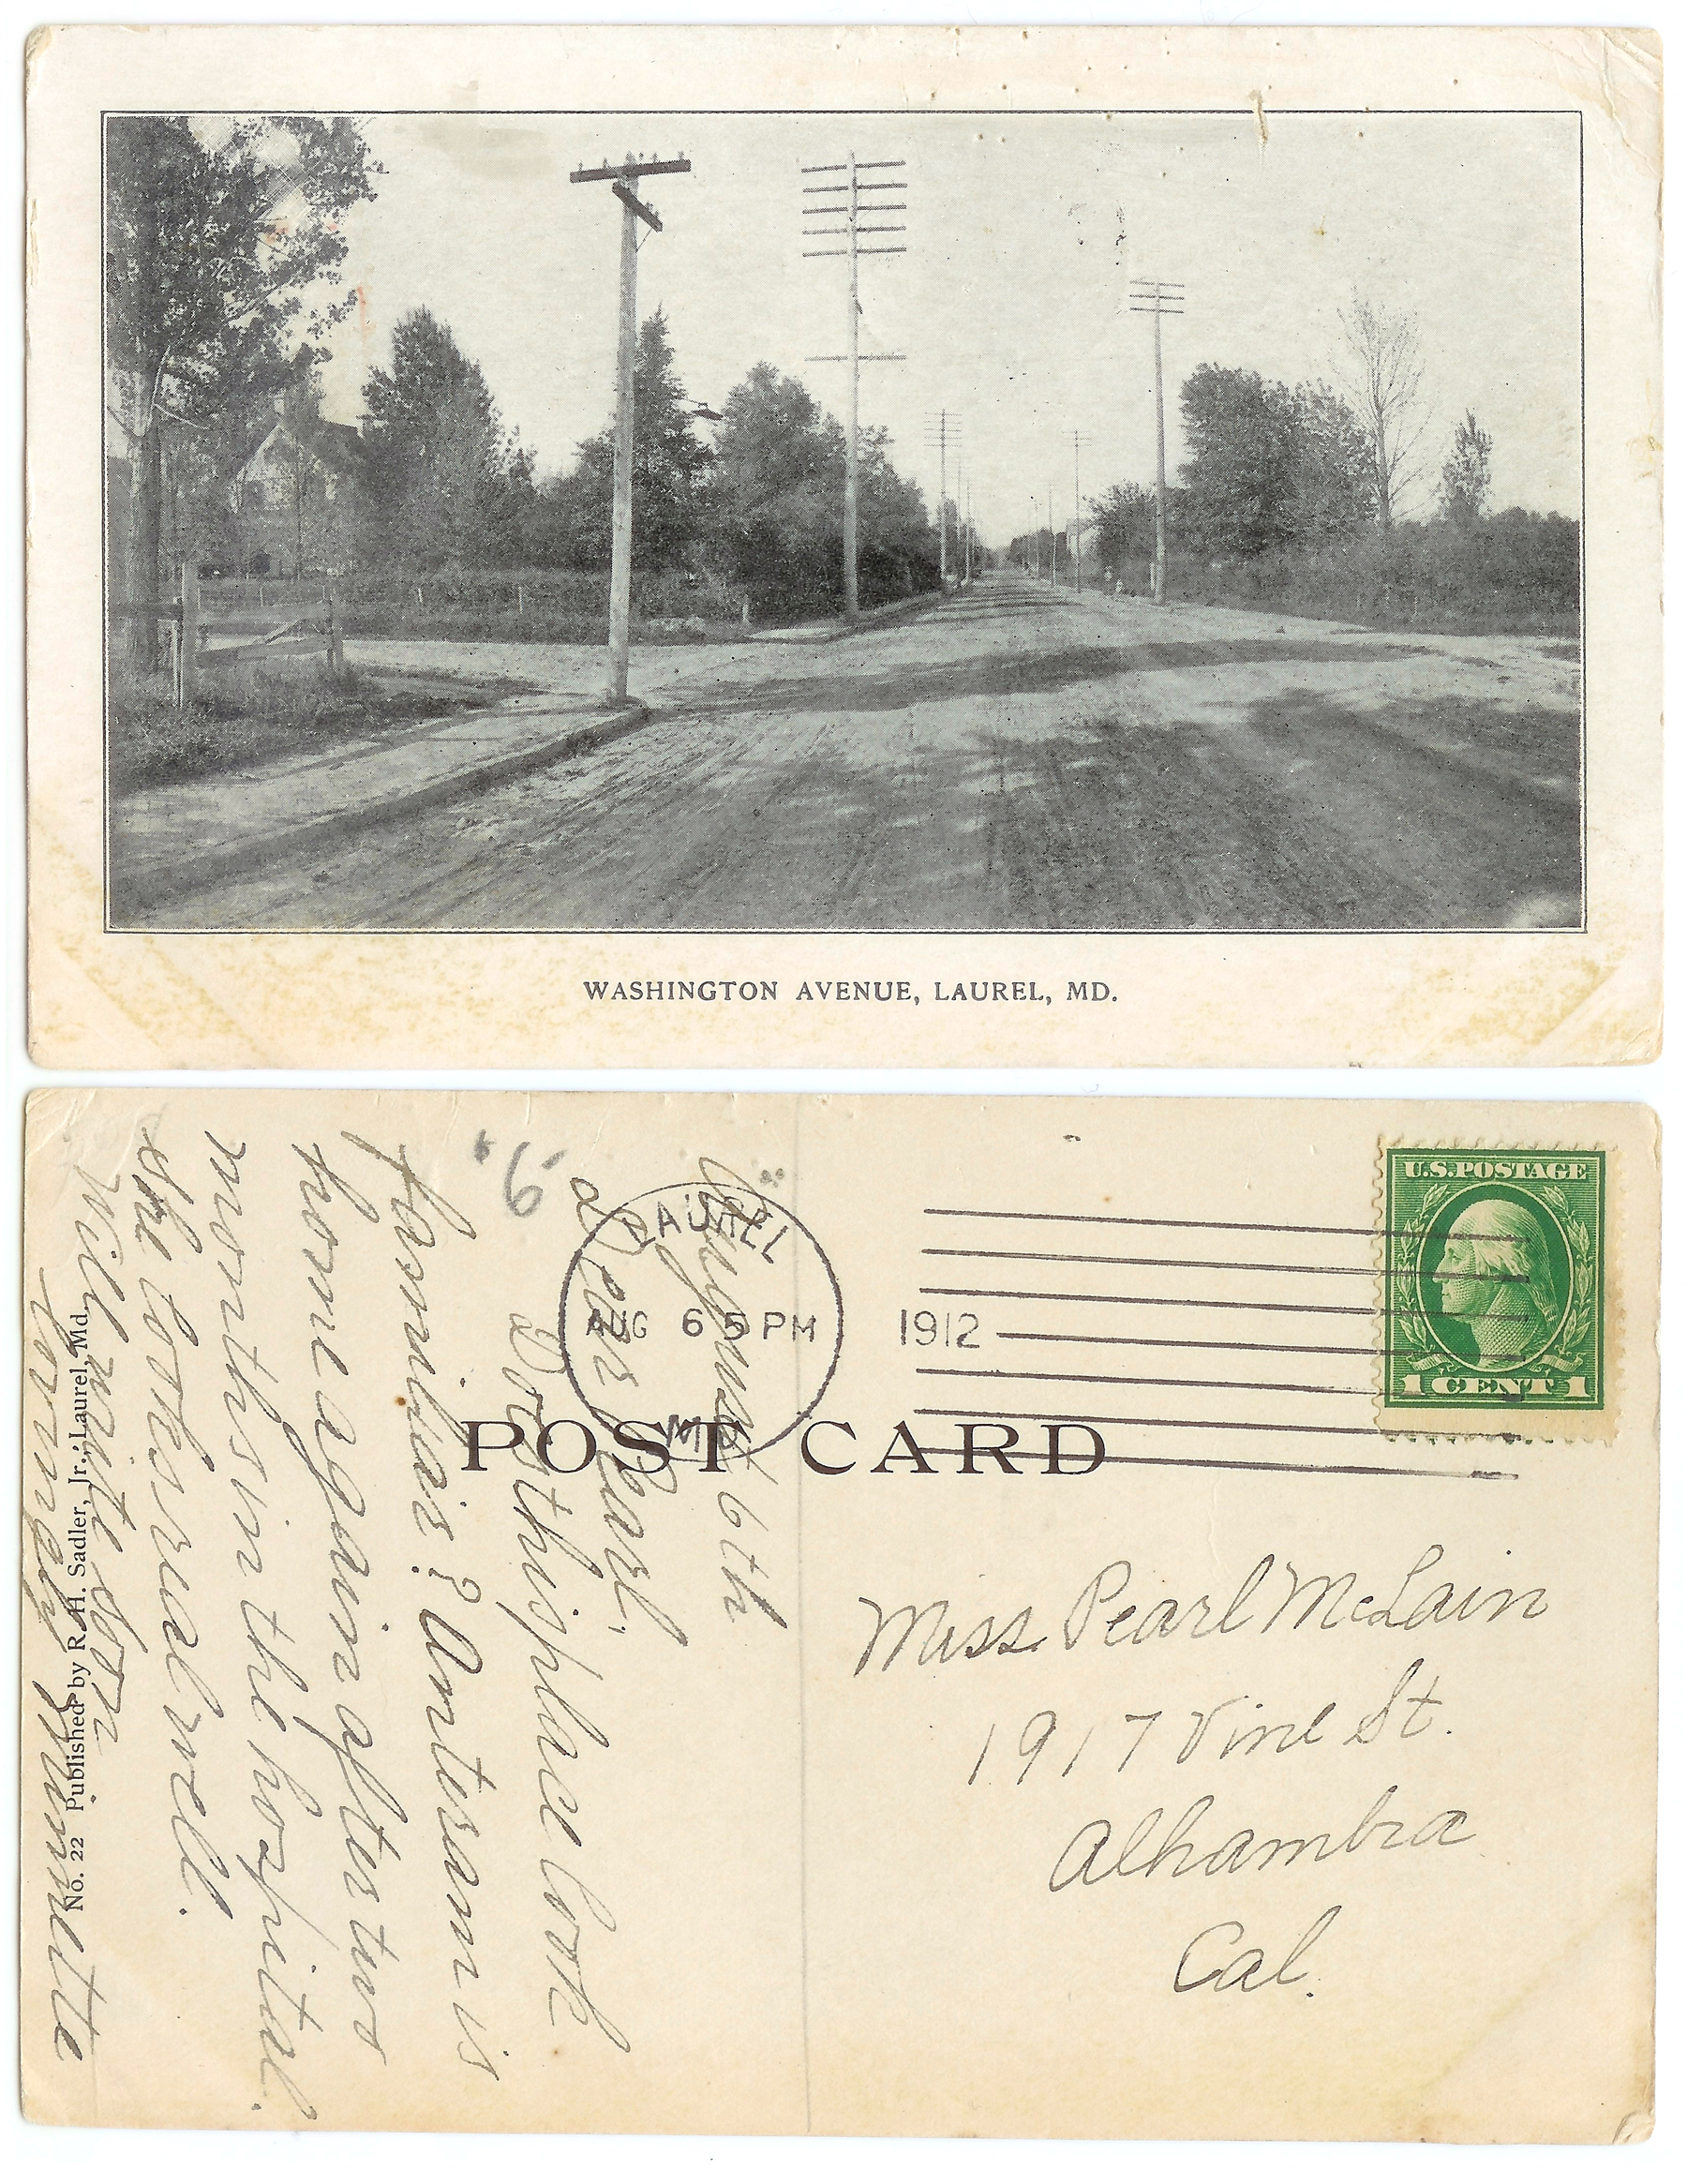 WASHINGTON AVENUE, LAUREL, MD.
LAUREL
AUG 6 5 PM
MD
1912
U.S. POSTAGE
1 CENT 1
POST CARD
August 6th
Dear Pearl:
Does this place look
familiar? Antram is
home again after two
months in the hospital.
She looks real well.
Will write soon
Lovingly Nannette
Miss Pearl McLain
1917 Vine St.
Alhambra
Cal.
No. 22 Published by R. H. Sadler, Jr., Laurel, Md.